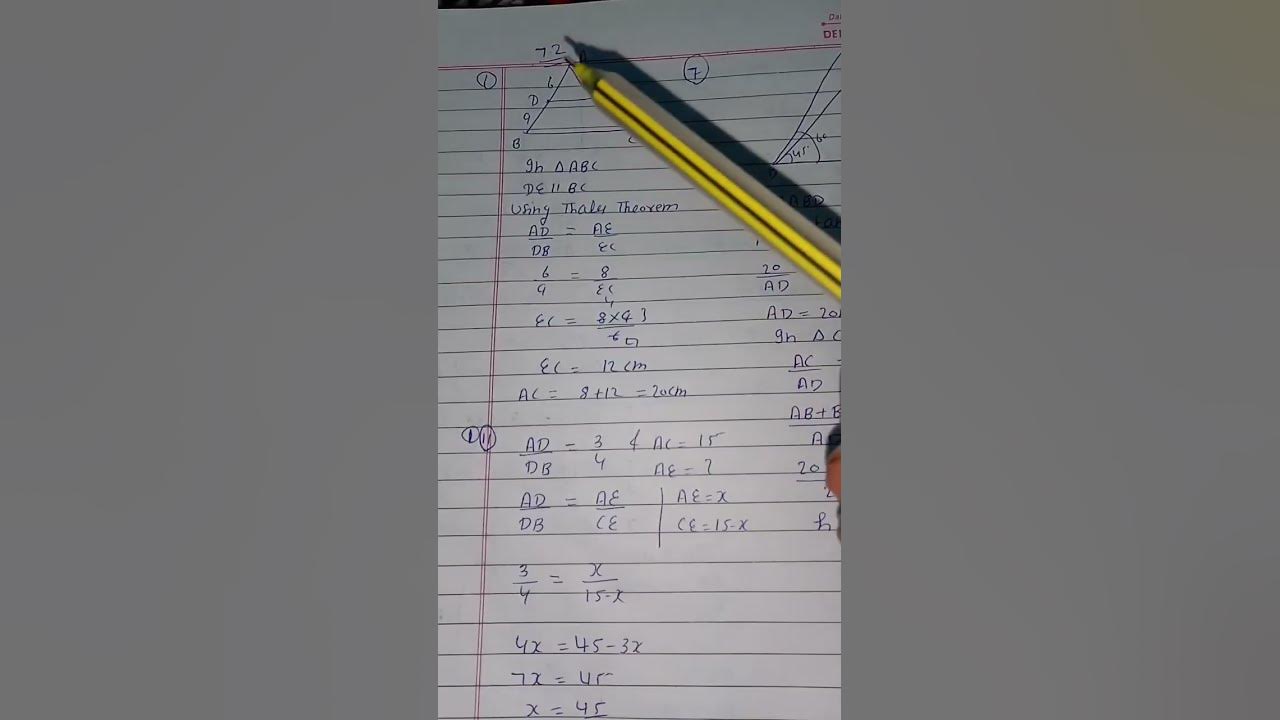 Da
DE
72
① ⑦
A
6
D
9
B C
60
45
In △ ABC
DE || BC
Using Thales Theorem
AD/DB = AE/EC
6/9 = 8/EC
EC = 8×9 3/6
EC = 12 cm
AC = 8+12 = 20cm
AD/DB = 3/4 & AC = 15
AE = ?
AD/DB = AE/CE | AE = x
CE = 15-x
3/4 = x/15-x
4x = 45-3x
7x = 45
x = 45
ABD
20/AD
AD = 20
In △ C
AC/AD =
AB+B
A
20
h